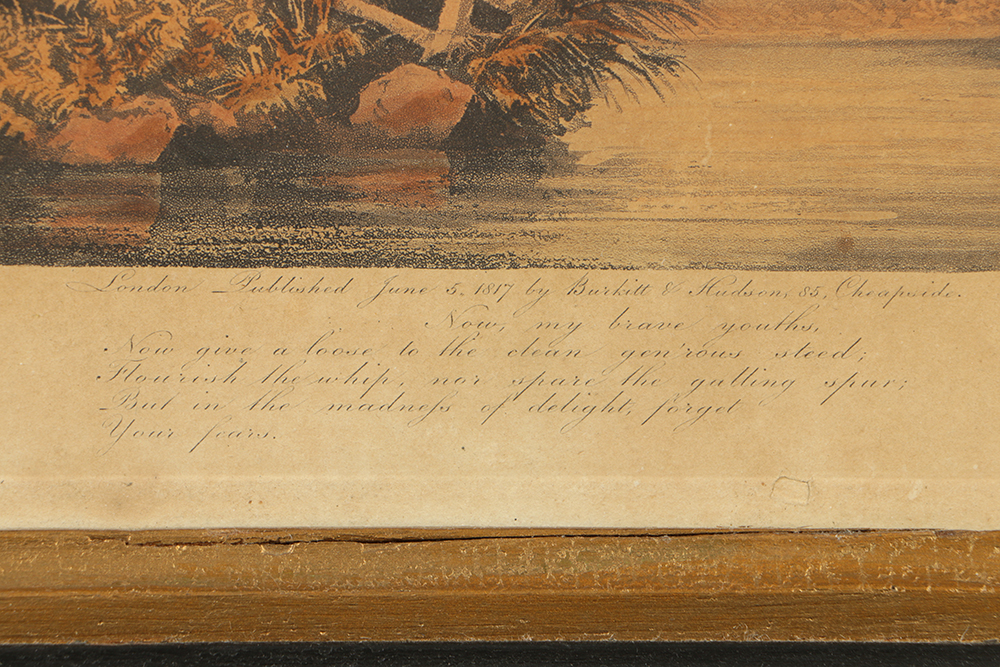 London Published June 5. 1817 by Burkitt & Hudson, 85, Cheapside.
Now, my brave youths,
Now give a loose to the clean gen'rous steed;
Flourish the whip, nor spare the galling spur;
But in the madneſs of delight, forget
Your fears.